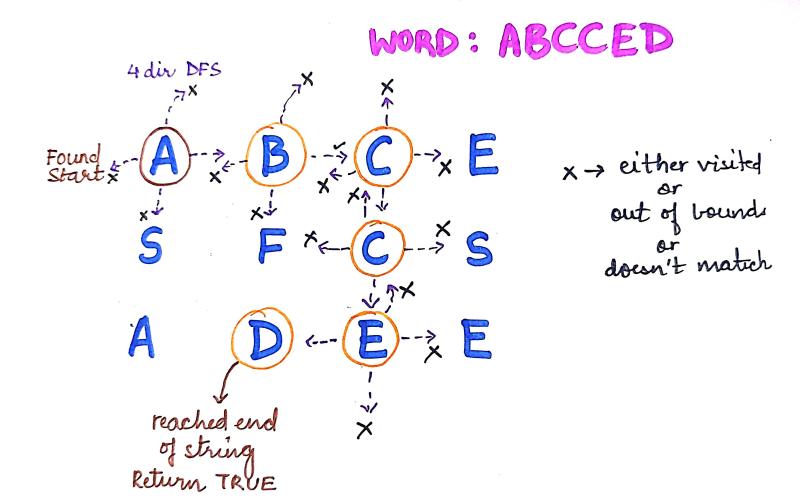 WORD: ABCCED
4 dir DFS
Found
Start
A B C E
S F C S
A D E E
x → either visited
or
out of bounds
or
doesn't match
reached end
of string
Return TRUE